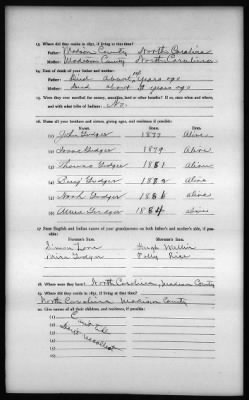 13. Where did they reside in 1851, if living at that time?
Father: Madison County North Carolina
Mother: Madison County North Carolina
14. Date of death of your father and mother:
Father: Died about years ago
Mother: Died about 9 years ago
15. Were they ever enrolled for money, annuities, land or other benefits? If so, state when and where,
and with what tribe of Indians: No.
16. Name all your brothers and sisters, giving ages, and residence if possible:
NAME. BORN. DIED.
(1) John Gudger 1877 Alive
(2) Isaac Gudger 1879 Alive
(3) Thomas Gudger 1881 Alive
(4) Gudger 1882 alive
(5) Noah Gudger 188 alive
(6) Gudger 1884 alive
17. Give English and Indian names of your grandparents on both father's and mother's side, if pos-
sible:
FATHER'S SIDE. MOTHER'S SIDE.
Hugh Wallin
Gudger Polly Rice
18. Where were they born? North Carolina, Madison County
19. Where did they reside in 1851, if living at that time?
North Carolina Madison County
20. Give names of all their children, and residence, if possible:
(1)
(2)
(3)
(4)
(5)